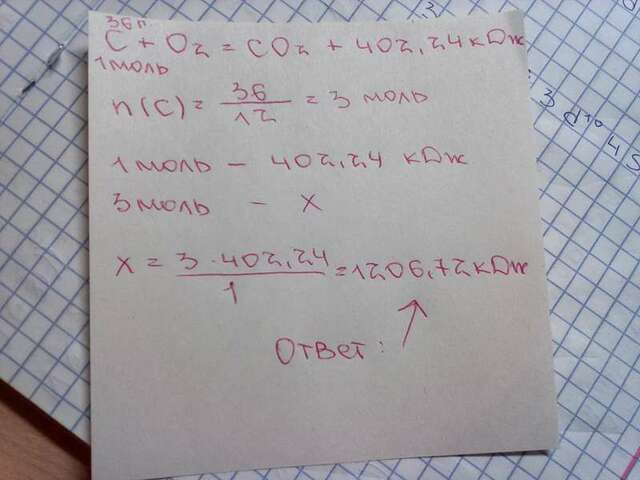 36 г
C + O2 = CO2 + 402,24 кДж
1 моль
n(C) = 36/12 = 3 моль
1 моль - 402,24 кДж
3 моль - x
x = 3·402,24/1 = 1206,72 кДж
Ответ: